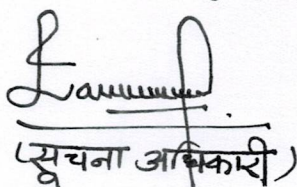 (सूचना अधिकारी)